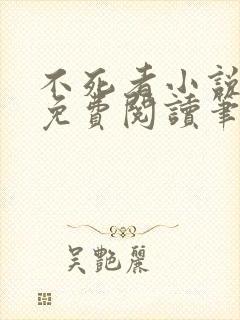 不死者小說
免費閱讀筆
吳艷麗